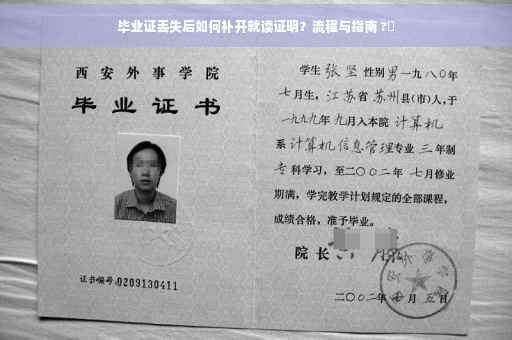 毕业证丢失后如何补开就读证明？流程与指南?
西安外事学院
毕业证书
证书编号:0209130411
学生张坚性别男一九八〇年
七月生，江苏省苏州县(市)人,于
一九九九年九月入本院计算机
系计算机信息管理专业三年制
专科学习，至二〇〇二年七月修业
期满，学完教学计划规定的全部课程，
成绩合格，准予毕业。
院长
二〇〇二年 月五日